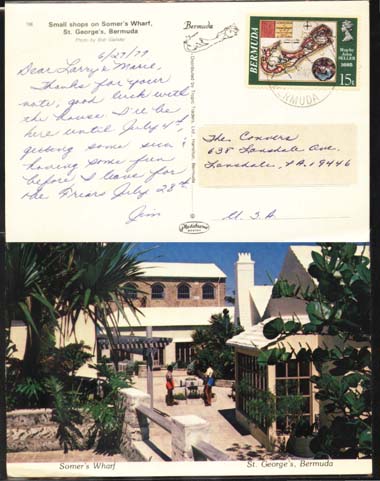 116 Small shops on Somer's Wharf,
St. George's, Bermuda
Photo by Bob Gelder
Bermuda
6/27/79
Dear Larry & Marie,
Thanks for your
note, good luck with
the house. I'll be
here until July 4th,
getting some sun &
having some fun
before I leave for
the Friars July 28th.
Jim
Distributed by Tropic Traders, Ltd., Hamilton, Bermuda
BERMUDA
Map by
John
SELLER
15c
BERMUDA
The Convers
638 Lansdale Ave.
Lansdale, PA. 19446
U.S.A.
Somer's Wharf
St. George's, Bermuda